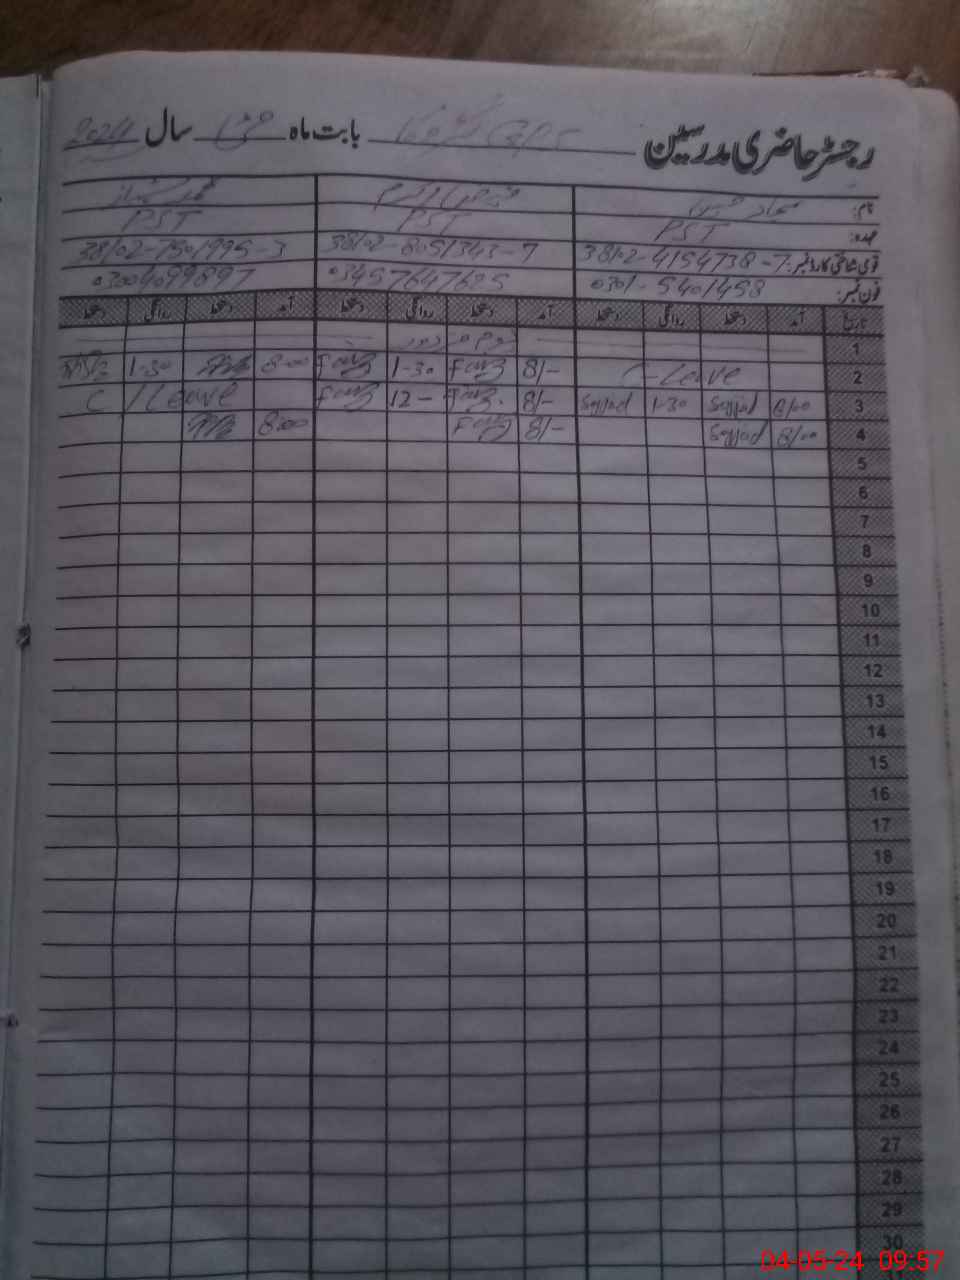 رجسٹر حاضری مدرسین GPS بابت ماہ مئی سال 2024
نام:
عہدہ: PST PST PST
قومی شناختی کارڈ نمبر: 38102-4154738-7 38102-8051343-7 38102-7501995-3
فون نمبر: 0301-5401458 03457647625 03004099897
تاریخ آمد دستخط روانگی دستخط آمد دستخط روانگی دستخط آمد دستخط روانگی دستخط
1 یوم مزدور
2 C-Leave 8/- 1-30 8-00 1-30
3 8/00 Sajjad 1-30 Sajjad 8/- 12- C/Leave
4 8/00 Sajjad 8/- 8-00
5
6
7
8
9
10
11
12
13
14
15
16
17
18
19
20
21
22
23
24
25
26
27
28
29
30
04-05-24 09:57